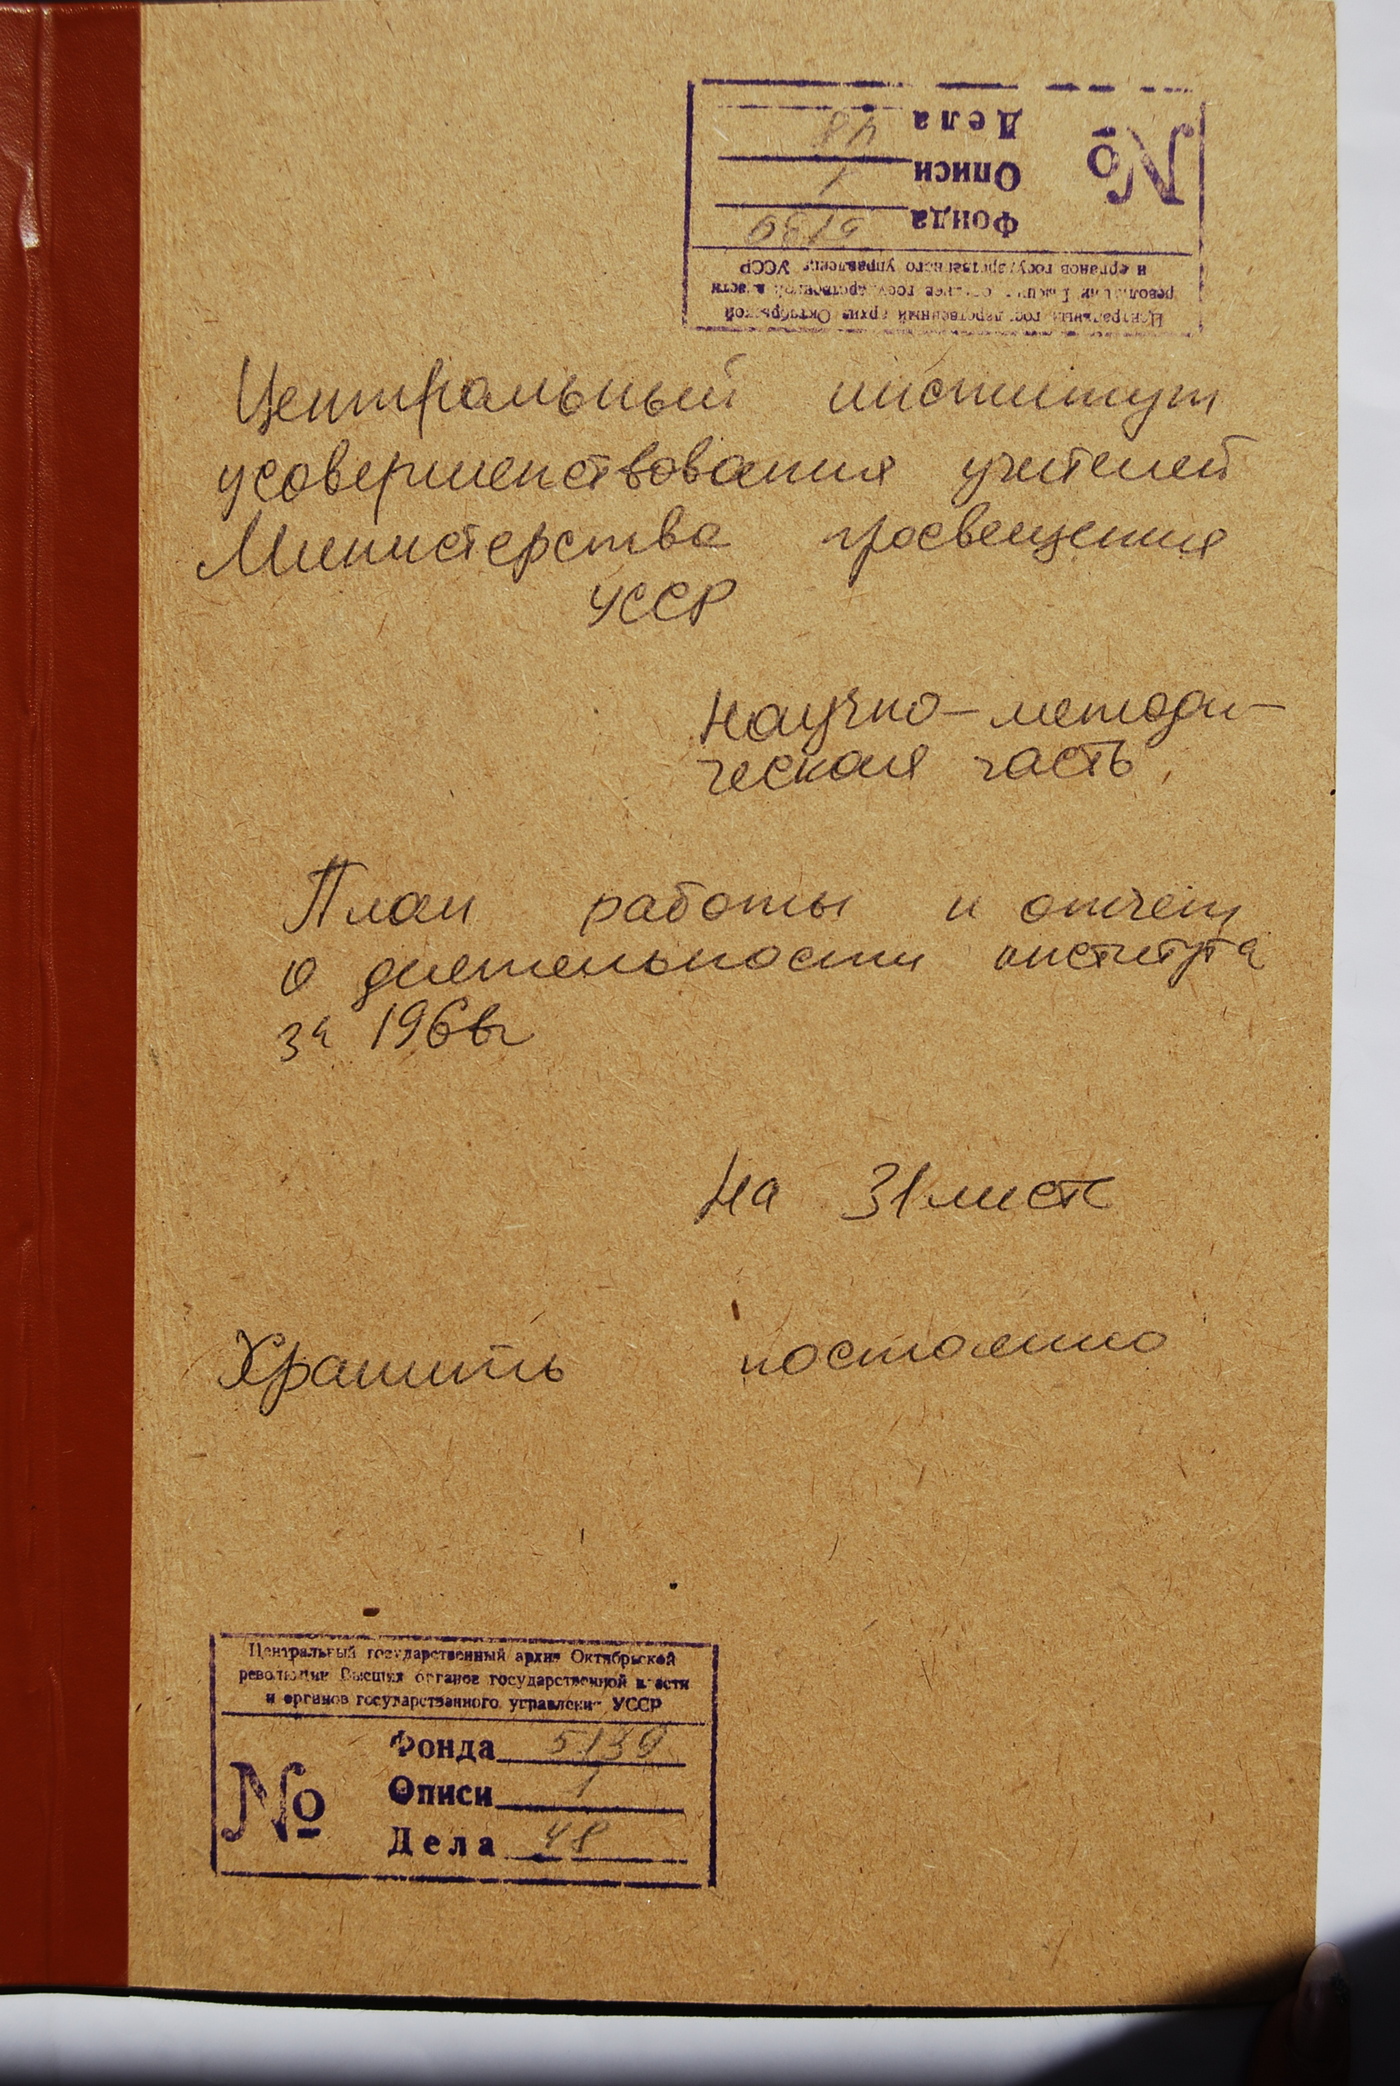 Центральный государственный архив Октябрьской
революции Высших органов государственной власти
и органов государственного управления УССР
№
Фонда 5139
Описи 1
Дела 48
Центральный институт
усовершенствования учителей
Министерства просвещения
УССР
Научно-методи-
ческая часть
План работы и отчет
о деятельности института
за 1966г
На 31 листе
Хранить постоянно
Центральный государственный архив Октябрьской
революции Высших органов государственной власти
и органов государственного управления УССР
№
Фонда 5139
Описи 1
Дела 48